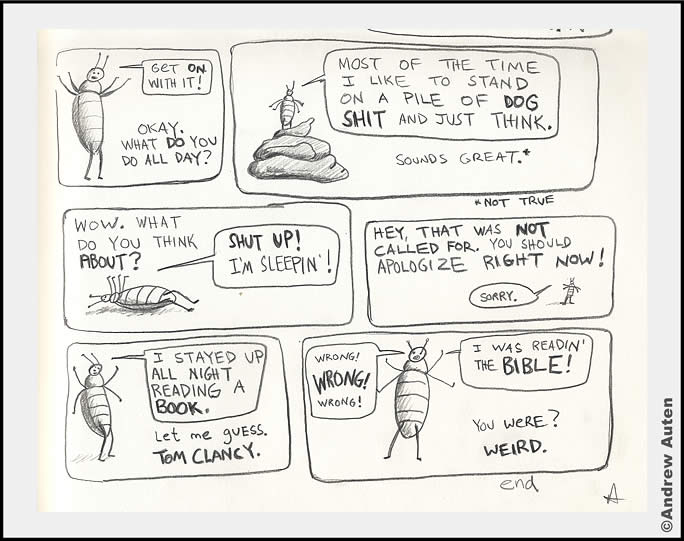 GET ON
WITH IT!
OKAY.
WHAT DO YOU
DO ALL DAY?
MOST OF THE TIME
I LIKE TO STAND
ON A PILE OF DOG
SHIT AND JUST THINK.
SOUNDS GREAT.*
*NOT TRUE
WOW. WHAT
DO YOU THINK
ABOUT?
SHUT UP!
I'M SLEEPIN'!
HEY, THAT WAS NOT
CALLED FOR. YOU SHOULD
APOLOGIZE RIGHT NOW!
SORRY.
I STAYED UP
ALL NIGHT
READING A
BOOK.
Let me guess.
TOM CLANCY.
WRONG!
WRONG!
WRONG!
I WAS READIN'
THE BIBLE!
YOU WERE?
WEIRD.
end
A
©Andrew Auten